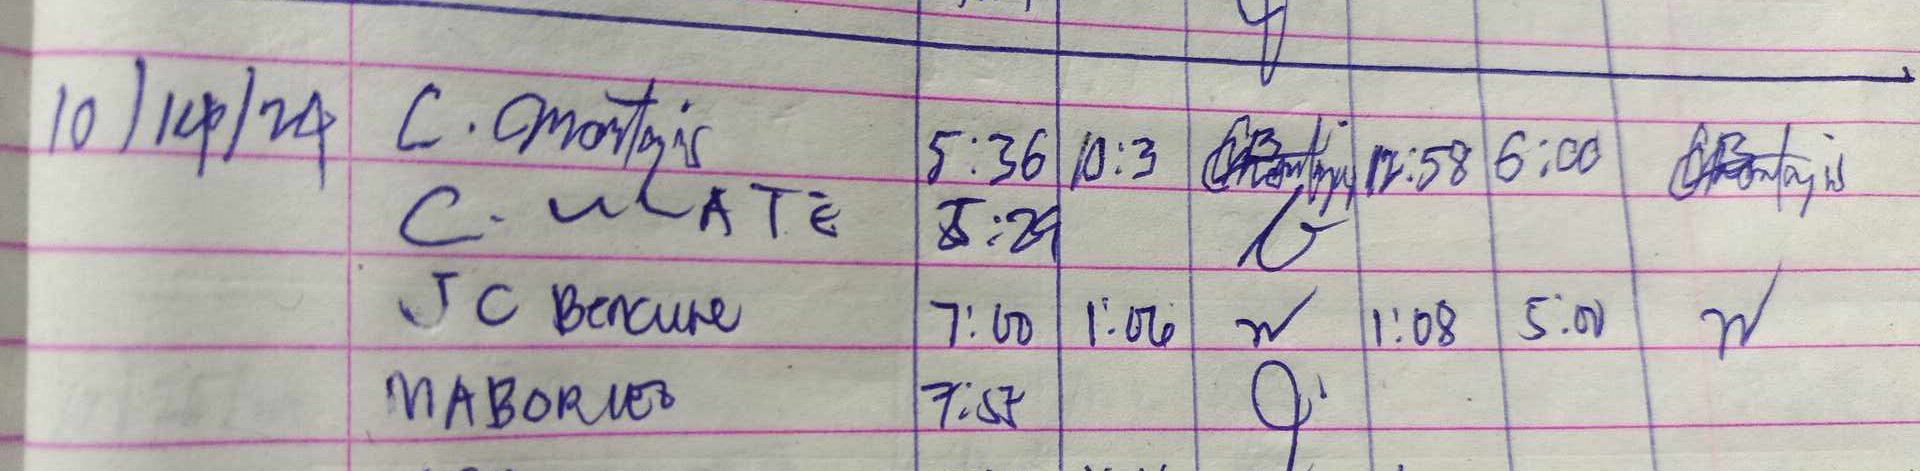 10/14/24 C. Montajis 5:36 10:3 12:58 6:00
C. ULATE 5:29
JC Bencure 7:00 1:06 1:08 5:00
MABORLES 7:55